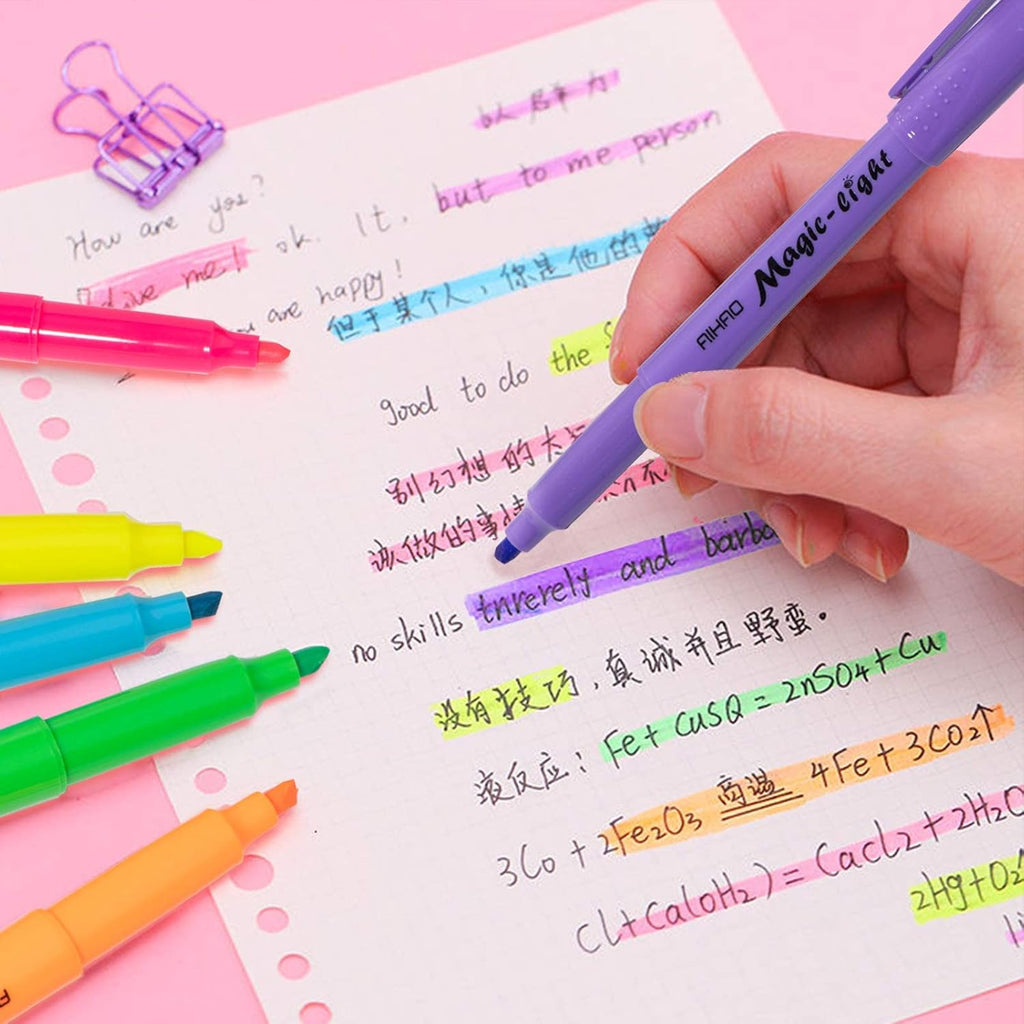 以 群 力
How are you?
ok. It. but to me person
Live me!
are happy!
但于某个人，你是他的
good to do the
别幻想的大
该做的事情
不
no skills tnrerely and bairba
没有技巧，真诚并且野蛮。
液反应： Fe+ CuSO = 2nSO4+Cu
3Co + 2Fe2O3 高温 4Fe + 3CO2↑
Cl+Ca(oH2) = Cacl2 + 2H2O
2Hg+O2↑
AIHAO Magic-Light